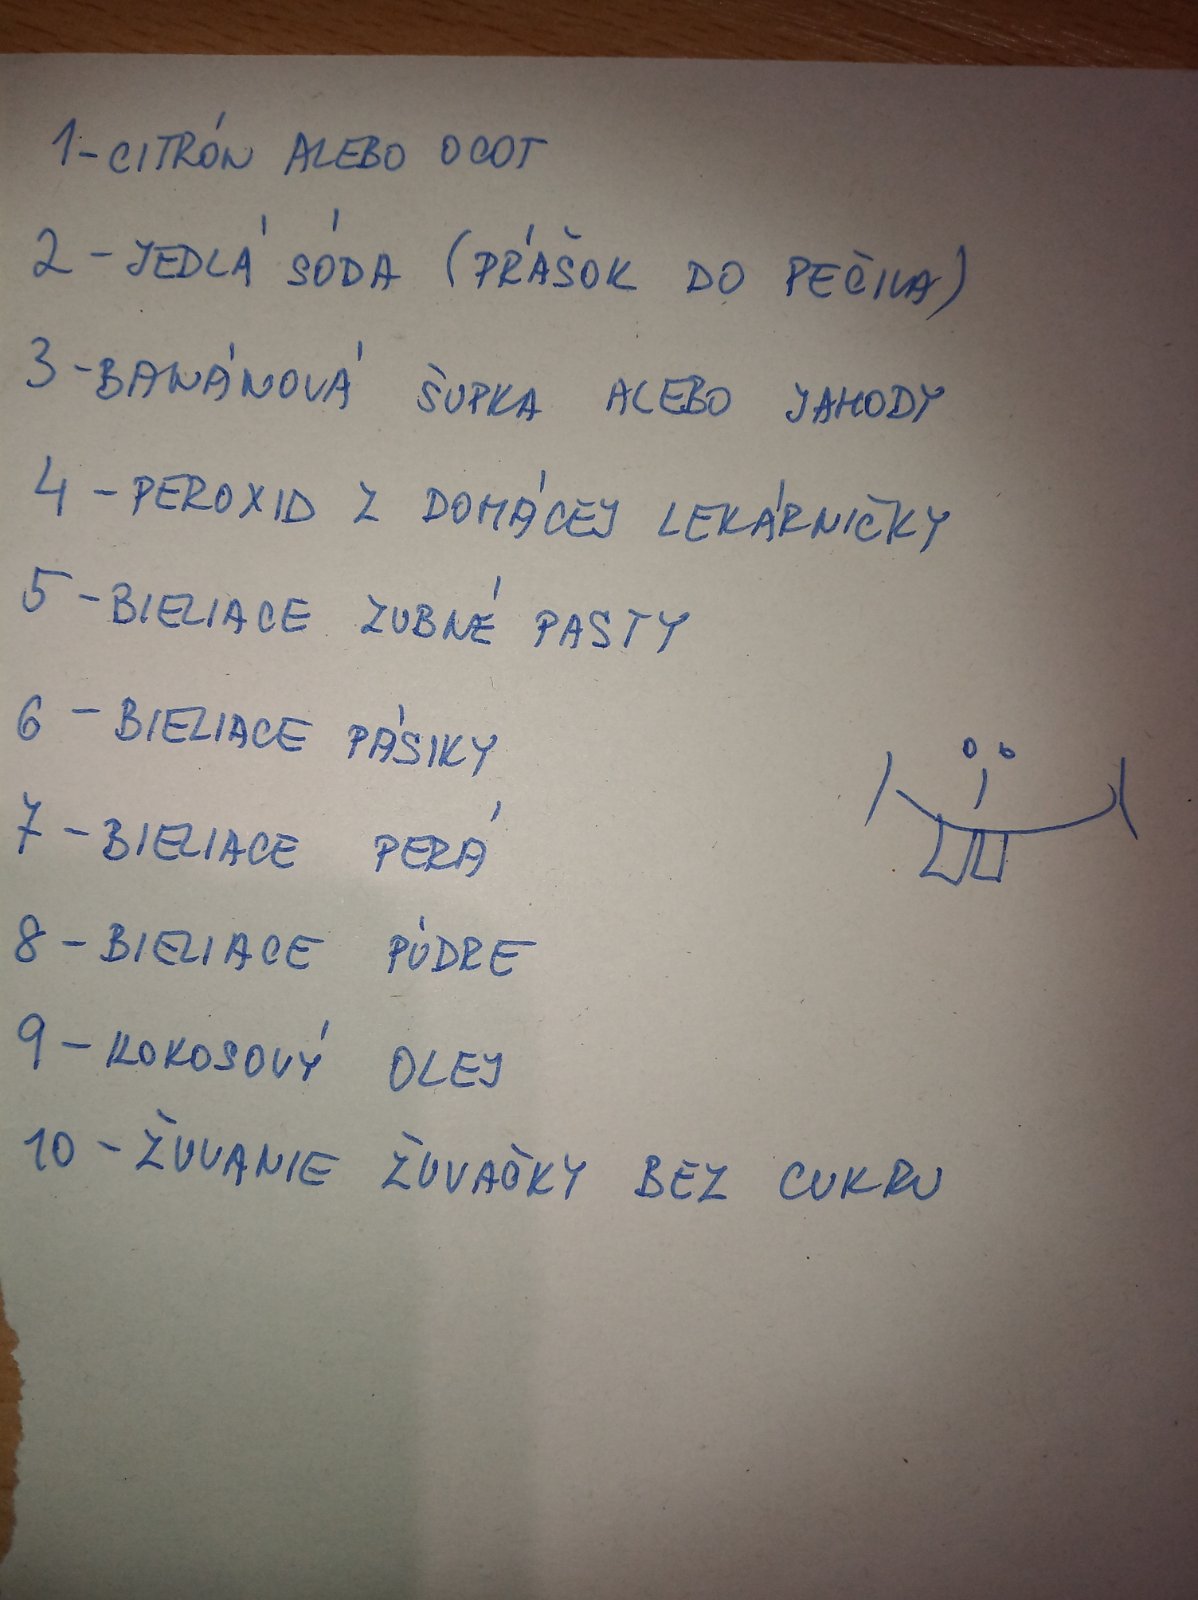 1-CITRÓN ALEBO OCOT
2-JEDLÁ SÓDA (PRÁŠOK DO PEČIVA)
3-BANÁNOVÁ ŠUPKA ALEBO JAHODY
4-PEROXID Z DOMÁCEJ LEKÁRNIČKY
5-BIELIACE ZUBNÉ PASTY
6-BIELIACE PÁSIKY
7-BIELIACE PERÁ
8-BIELIACE PÚDRE
9-KOKOSOVÝ OLEJ
10-ŽUVANIE ŽUVAČKY BEZ CUKRU